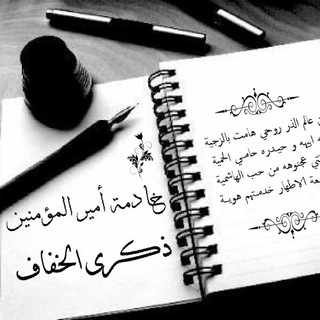 خادمة أمير المؤمنين
ذكرى الخفاف
ن عالم الذر روحي هامت بالزجية
ابيه و حيدره حامي الحمية
معجونه من حب الهاشمية
الاطهار خدمتهم هوية